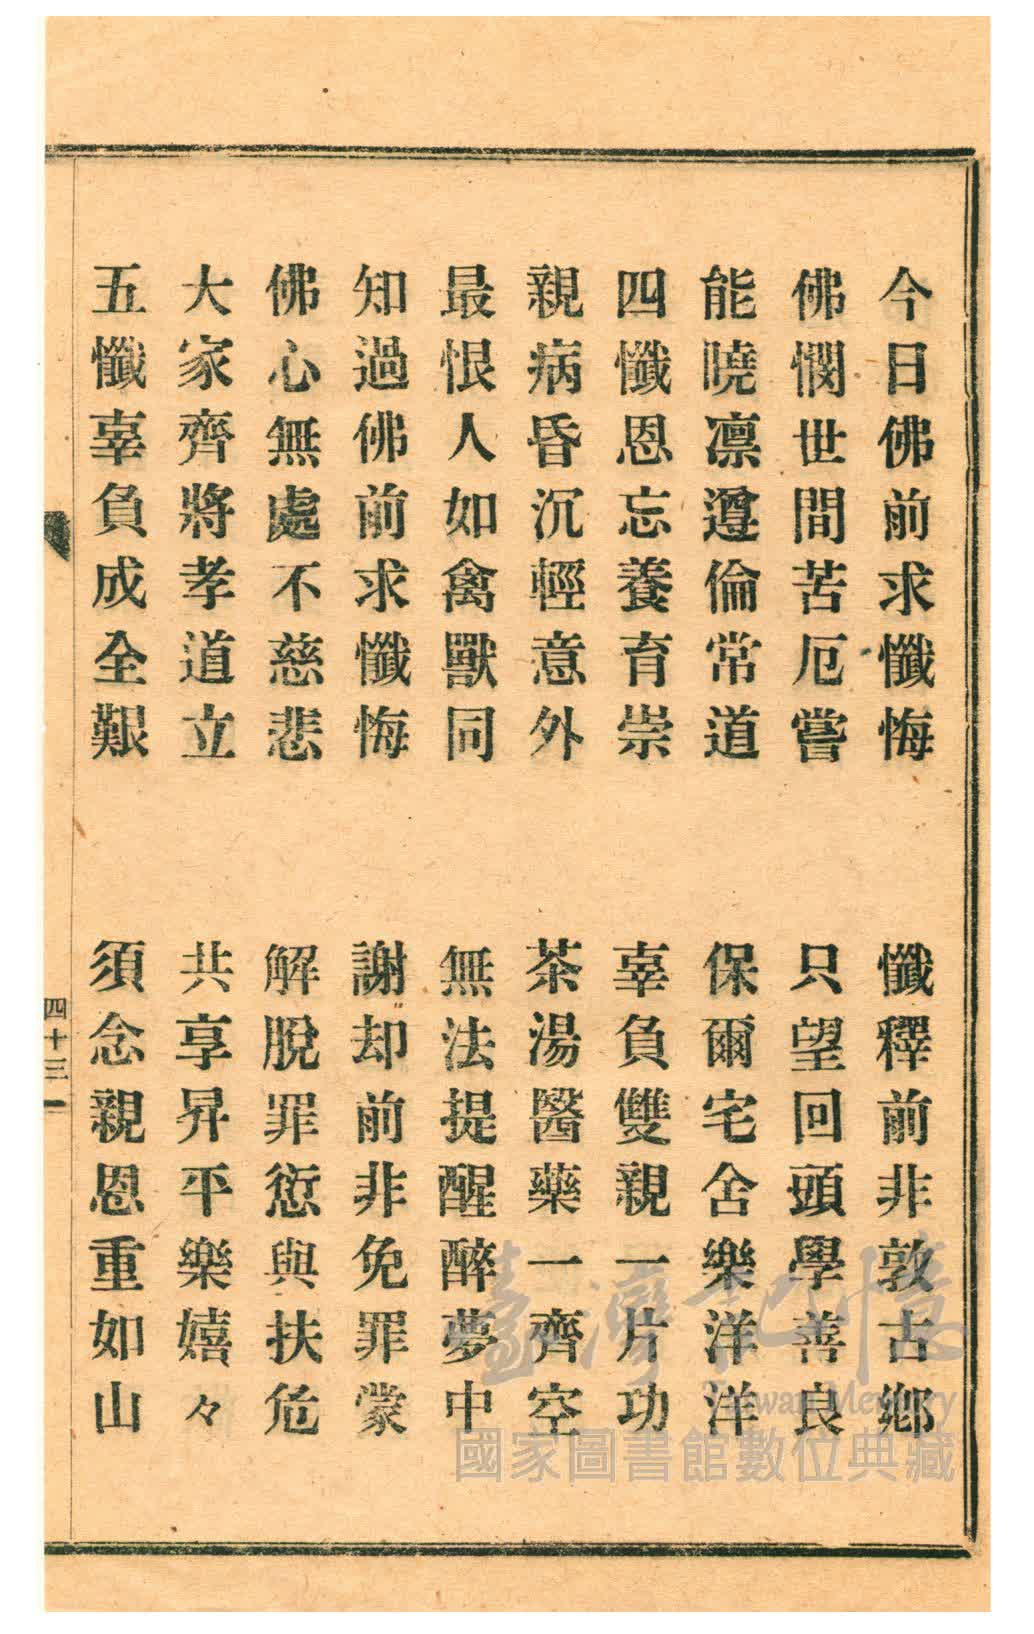 今日佛前求懺悔　懺釋前非敦古鄉
佛憫世間苦厄嘗　只望回頭學善良
能曉凛遵倫常道　保爾宅舍樂洋洋
四懺恩忘養育崇　辜負雙親一片功
親病昏沉輕意外　茶湯醫藥一齊空
最恨人如禽獸同　無法提醒醉夢中
知過佛前求懺悔　謝却前非免罪蒙
佛心無處不慈悲　解脫罪愆與扶危
大家齊將孝道立　共享昇平樂嬉々
五懺辜負成全艱　須念親恩重如山
四十三
臺灣記憶
Taiwan Memory
國家圖書館數位典藏